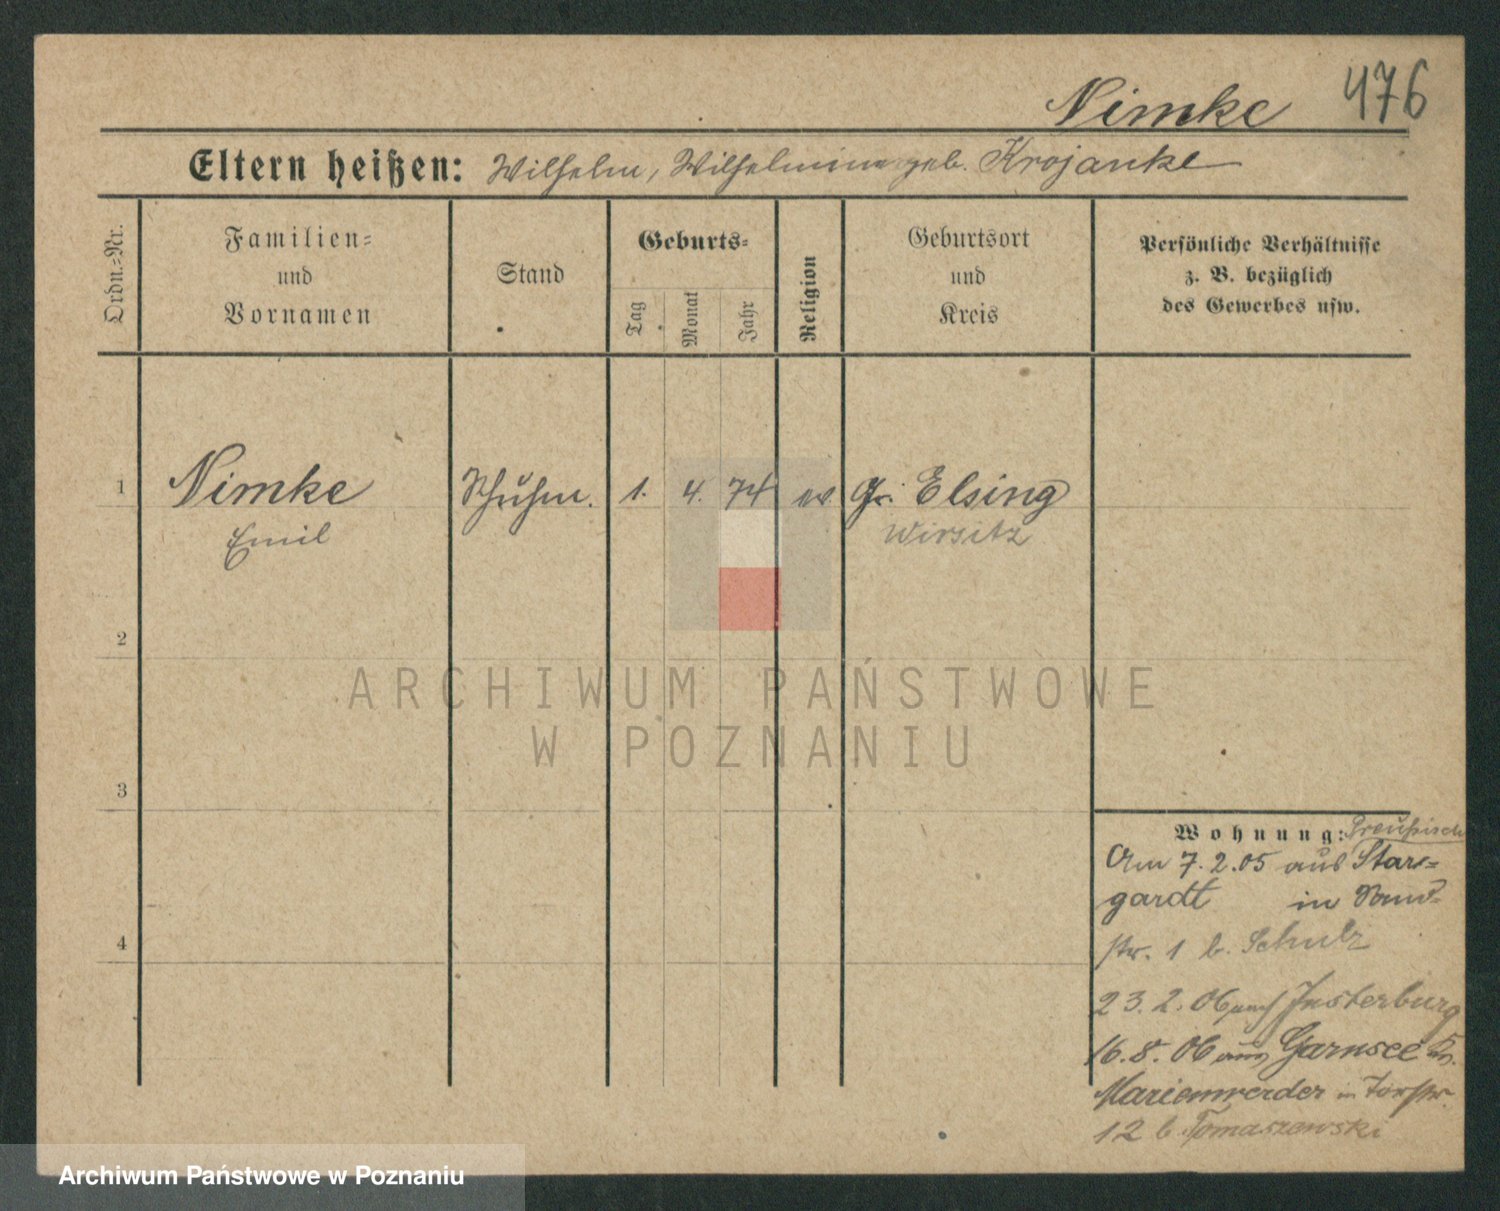 Nimke 476
Eltern heißen: Wilhelm, Wilhelmine geb. Krojanke
Ordn.=Nr.
Familien=
und
Vornamen
Stand
Geburts=
Tag
Monat
Jahr
Religion
Geburtsort
und
Kreis
Persönliche Verhältnisse
z. B. bezüglich
des Gewerbes usw.
1 Nimke Schuhm. 1. 4. 74 ev Gr. Elsing
Emil Wirsitz
2
3
4
Wohnung: Preußisch
Am 7.2.05 aus Star=
gardt in
str. 1 b. Schulz
23.2.06 nach Insterburg
16.8.06 aus Garnsee Kr.
Marienwerder in Torstr.
12 b. Tomaszewski
ARCHIWUM PAŃSTWOWE
W POZNANIU
Archiwum Państwowe w Poznaniu